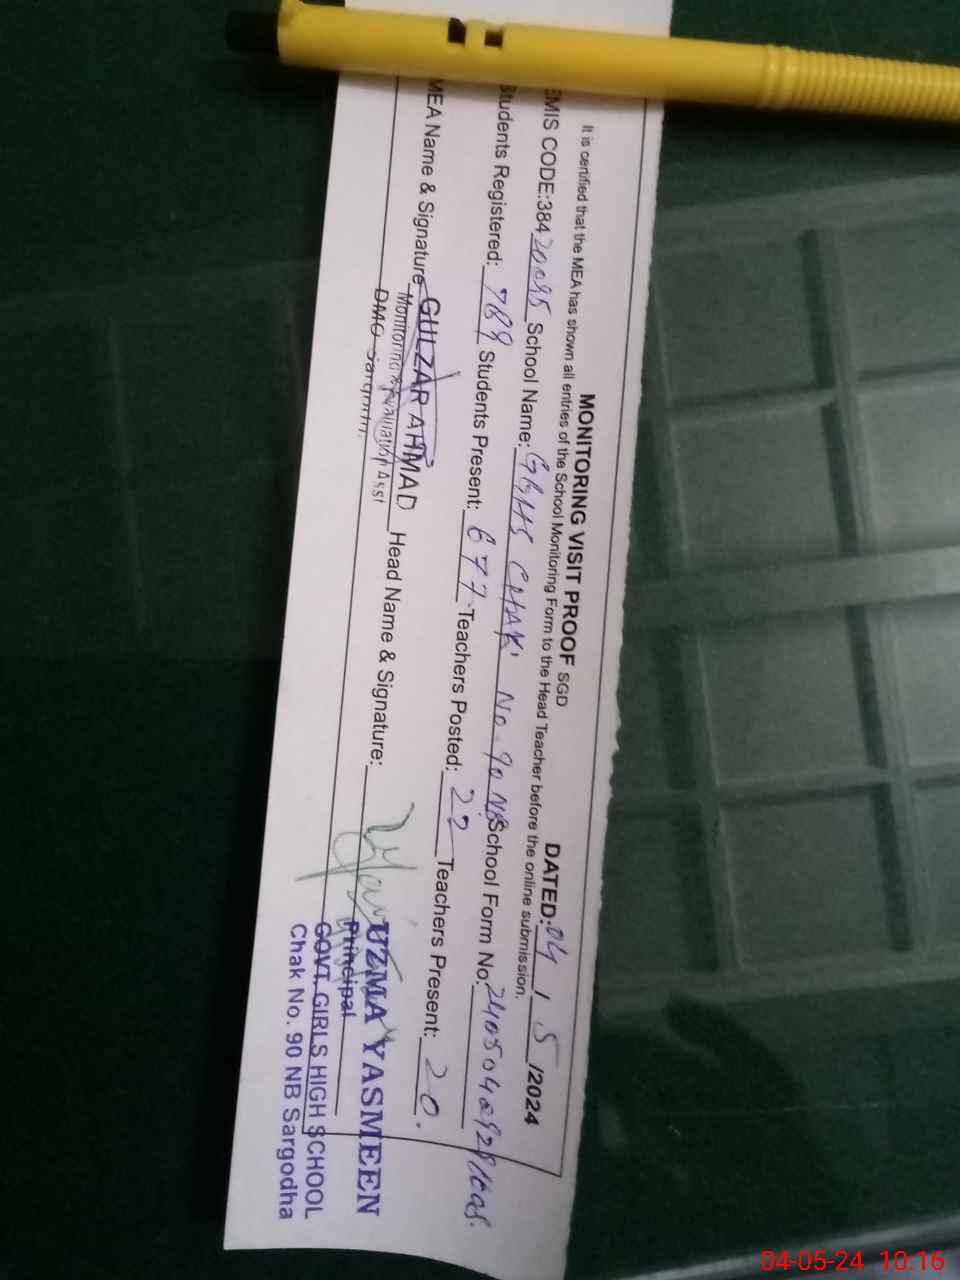 MONITORING VISIT PROOF SGD DATED: 04 / 5 /2024
It is certified that the MEA has shown all entries of the School Monitoring Form to the Head Teacher before the online submission.
EMIS CODE:38420095 School Name: GGHS CHAK No. 90 NB School Form No:
Students Registered: 789 Students Present: 677 Teachers Posted: 22 Teachers Present: 20.
MEA Name & Signature GULZAR AHMAD Head Name & Signature:
Monitoring & Evaluation Asst
DMO Sargodha.
UZMA YASMEEN
Principal
GOVT. GIRLS HIGH SCHOOL
Chak No. 90 NB Sargodha
04-05-24 10:16